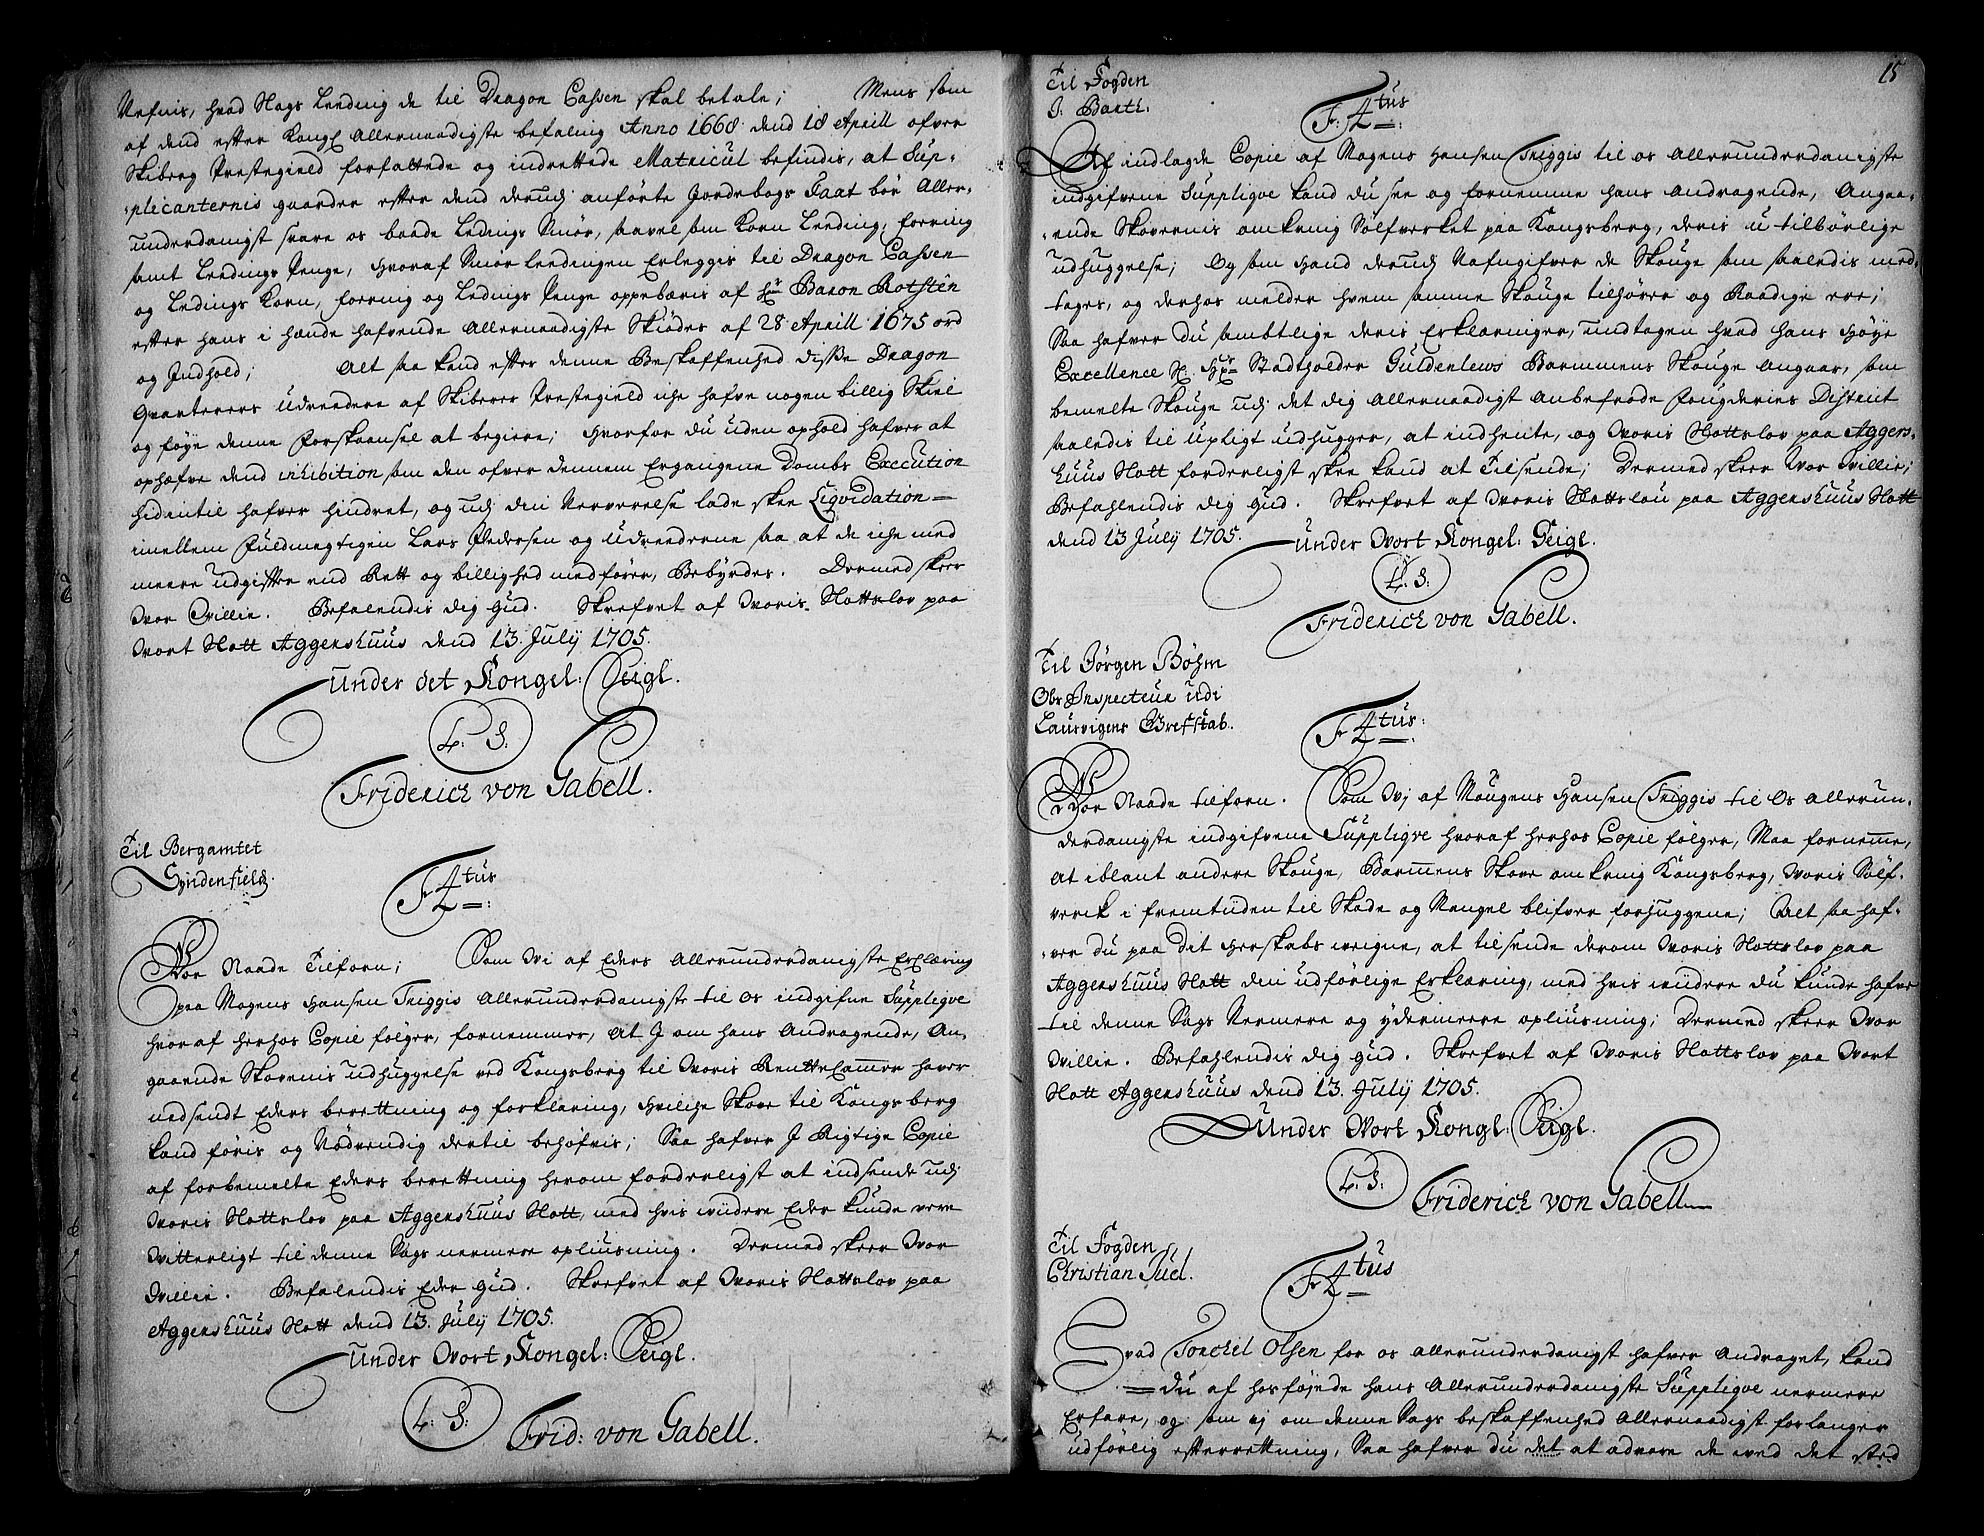 Nefnis, hvad Slags Leeding de til Dragon Cassen skal betale; Mens som
af dend effter Kongl Allernaadigste befaling Anno 1668 dend 18 Aprill ofver
Skiberg Prestegield forfattede og indrettede Matricul befindis, at Sup-
plicanternis gaarder effter dend derudj anførte Jordebogs Taat bør Aller-
underdanigst svare os baade Ledings Smør, saavel som Korn Leeding, foering
samt Leedings Penge, hvoraf Smør leedingen Erleggis til Dragon Cassen
og Ledings Korn, foering og Lednigs Penge oppebæris af Hr Baron Rotstén
effter hans i hænde hafvende Allernaadigste Skiødes af 28 Aprill 1675 ord
og Indhold; Alt saa kand effter denne Beskaffenhed disse Dragon
Qvarterers Udreedere af Skiberer Prestegield iche hafve nogen billig Skiel
og føye denne Forskaansel at begiere; Hvorfor du uden ophold hafver at
ophæfve dend inhibition som den ofver dennem Ergangene Dombs Execution
hidentil hafver hindret, og udj din Nerverelse lade skee Liqvidation
imellem Fuldmegtigen Lars Pedersen og Udreederne saa at de iche med
meere udgiffter end Rett og billighed medfører, Bebyrdes. Dermed skeer
Vor Villie. Befalendis dig Gud. Skrefvet af Voris Slottslov paa
Vort Slott Aggershuus dend 13. July 1705.
Under det Kongel: Seigl.
L. S:
Friderich von Gabell.
Til Bergamtet
Syndenfields.
F 4tus
Vor Naade Tilforn; Som Vi af Eders Allerunderdanigste Erklæring
paa Mogens Hansen Triggis Allerunderdanigste til os indgifne Supplique
hvoraf herhos Copie følger, fornemmer, At I om hans Andragende, An-
gaaende Skovenis udhuggelse ved Kongsberg til Voris Renttecammer haver
nedsendt Eders berettning og forklaring, Hvilche Skove til Kongsberg
kand føris og Nødvendig dertil behøfvis; Saa hafver I Rigtige Copie
af forbemelte Eders berettning herom forderligst at indsende udj
Voris Slottslov paa Aggershuus Slott, med hvis viidere Eder kunde vere
Vitterligt til denne Sags nermere opliusning. Dermed skeer Vor
Villie. Befalendis Eder Gud. Skrefvet af Voris Slottslov paa
Aggershuus Slott dend 13. July 1705.
Under Vort Kongel: Seigl.
L: S:
Frid: von Gabell.
15
Til Fogden
J: Barth:
F: 4tus
Af indlagde Copie af Mogens Hansen Triggis til os Allerunderdanigste
indgifvene Supplique kand du see og fornemme hans Andragende, Angaa-
ende Skovernis omkring Sølfverket paa Kongsberg, deris u-tilbørlige
udhuggelse; Og som hand derudj Nafngifver de Skouge som saaledis med-
tages, og derhos melder hvem samme Skouge tilhører og Raadige ere;
Saa hafver du sambtlige deris Erklæringer, undtagen hvad hans Høye
Excellence Hr Stadtholder Guldenlews Barmmens Skouge angaar, som
bemelte Skouge udj det dig Allernaadigst Anbefroede Fougderies Distrect
saaledis til Upligt udhugger, at indhente, og Voris Slottslov paa Aggers-
huus Slott forderligst skee kand at Tilsende; Dermed skeer Vor Villie;
Befahlendis dig Gud. Skrefvet af Voris Slottslou paa Aggershuus Slott
dend 13 July 1705.
Under Vort Kongel: Seigl.
L: S:
Friderich von Gabell.
Til Jørgen Bøhm
Obr Inspecteur udi
Laurvigens Grefskab.
F 4tus:
Vor Naade tilforn. Som Vj af Mougens Hansen Triggis til Os Allerun-
derdanigste indgifvene Supplique hvoraf herhos Copie følger, Maa fornemme,
At iblant andere Skouge, Barmens Skove omkring Kongsberg, Voris Sølf-
verck i fremtiiden til Skade og Mangel blifver forhuggene; Alt saa haf-
ver du paa dit Herskabs veigne, at tilsende derom Voris Slottslov paa
Aggershuus Slott din udførlige Erklæring, med hvis viidere du kunde hafve
til denne Sags Nermere og ydermeere opliusning; Dermed skeer Vor
Villie. Befahlendis dig Gud. Skrefvet af Voris Slottslov paa Vort
Slott Aggershuus dend 13. July 1705.
Under Vort Kongl: Seigl.
L. S:
Friderich von Gabell
Til Fogden
Christian Juel.
F 4tus
Hvad Torchel Olsen for os allerunderdanigst hafver Andraget, kand
du af hosføjede hans Allerunderdanigste Supplique nermere
Erfare, og som vj om denne Sags beskaffenhed Allernaadigst forlanger
udførlig effterrettning, Saa hafver du det at advare de ved det sted